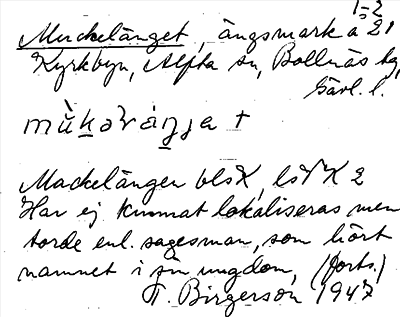 1-2
Muckelänget, ängsmark å 21
Kyrkbyn, Alfta sn, Bollnäs tg,
Gävl. l.
mùkəɽáŋja +
Mackelängen blsK, lsVK 2
Har ej kunnat lokaliseras men
torde enl. sagesman, som hört
namnet i sin ungdom, (forts.)
T. Birgerson 1947